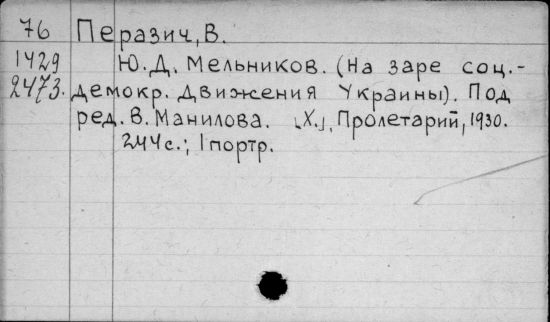 76 Перазич, В.
1429 Ю. Д. Мельников. (На заре соц.-
2473. демокр. движения Украины). Под
ред. В. Манилова. [Х.], Пролетарий, 1930.
244 с.; 1 портр.